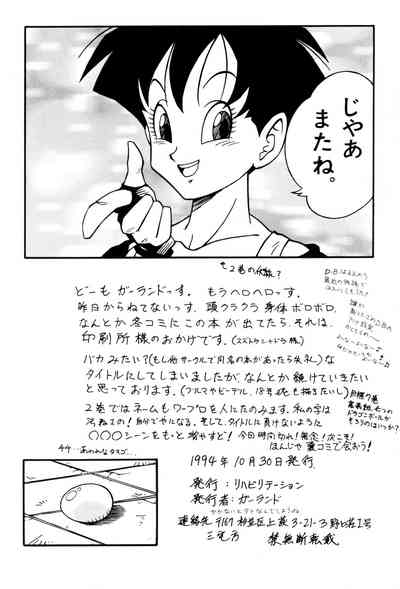 じゃあ
またね。
どーも ガーランドっす。 もうヘロヘロっす。
昨日からねてないっす。 頭クラクラ 身体ボロボロ。
なんとか 冬コミにこの本が出てたら、それは
印刷所様のおかげです。
バカみたい?(もし他サークルで同名の本があったら失礼)な
タイトルにしてしまいましたが、なんとか続けていきたい
と思っております。
2巻ではネームもワープロも人にたのみます。私の字は
自分でやになる。そして、タイトルに負けないように
〇〇〇シーンをもっと増やすど! 今回時間切れ!無念!次こそ!
ほんじゃ 夏コミで会おう!
1994年10月30日発行
発行:リハビリテーション
発行者:ガーランド
連絡先 〒167 杉並区上荻3-21-3
禁無断転載